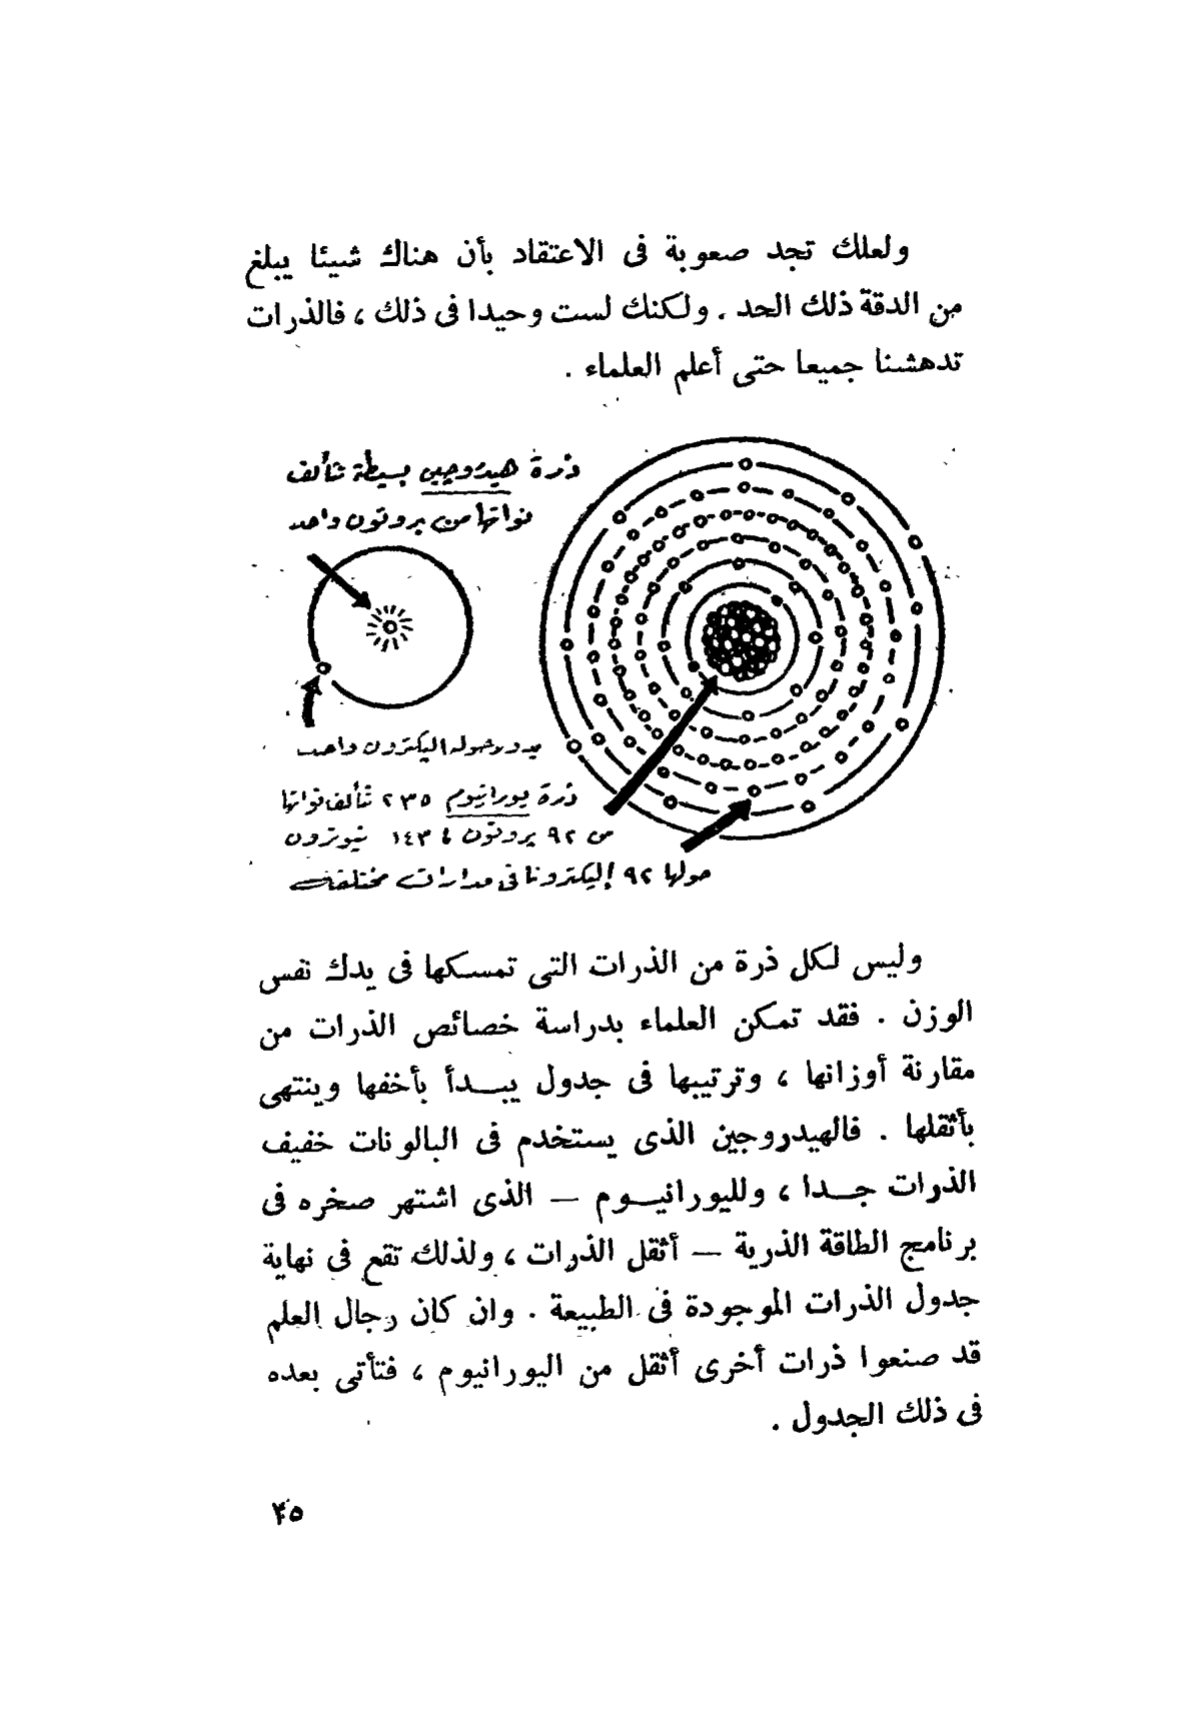 ولعلك تجد صعوبة فى الاعتقاد بأن هناك شيئا يبلغ
من الدقة ذلك الحد . ولكنك لست وحيدا فى ذلك ، فالذرات
تدهشنا جميعا حتى أعلم العلماء .
ذرة هيدروچين بسيطة تتألف
نواتها من بروتون واحد
يدور حوله اليكترون واحد
ذرة يورانيوم ٢٣٥ تتألف نواتها
من ٩٢ بروتون ، ١٤٣ نيوترون
حولها ٩٢ إليكترونا فى مدارات مختلفة
وليس لكل ذرة من الذرات التى تمسكها فى يدك نفس
الوزن . فقد تمكن العلماء بدراسة خصائص الذرات من
مقارنة أوزانها ، وترتيبها فى جدول يبــدأ بأخفها وينتهى
بأثقلها . فالهيدروجين الذى يستخدم فى البالونات خفيف
الذرات جــدا ، ولليورانيــوم — الذى اشتهر صخره فى
برنامج الطاقة الذرية — أثقل الذرات ، ولذلك تقع فى نهاية
جدول الذرات الموجودة فى الطبيعة . وان كان رجال العلم
قد صنعوا ذرات أخرى أثقل من اليورانيوم ، فتأتى بعده
فى ذلك الجدول .
٤٥